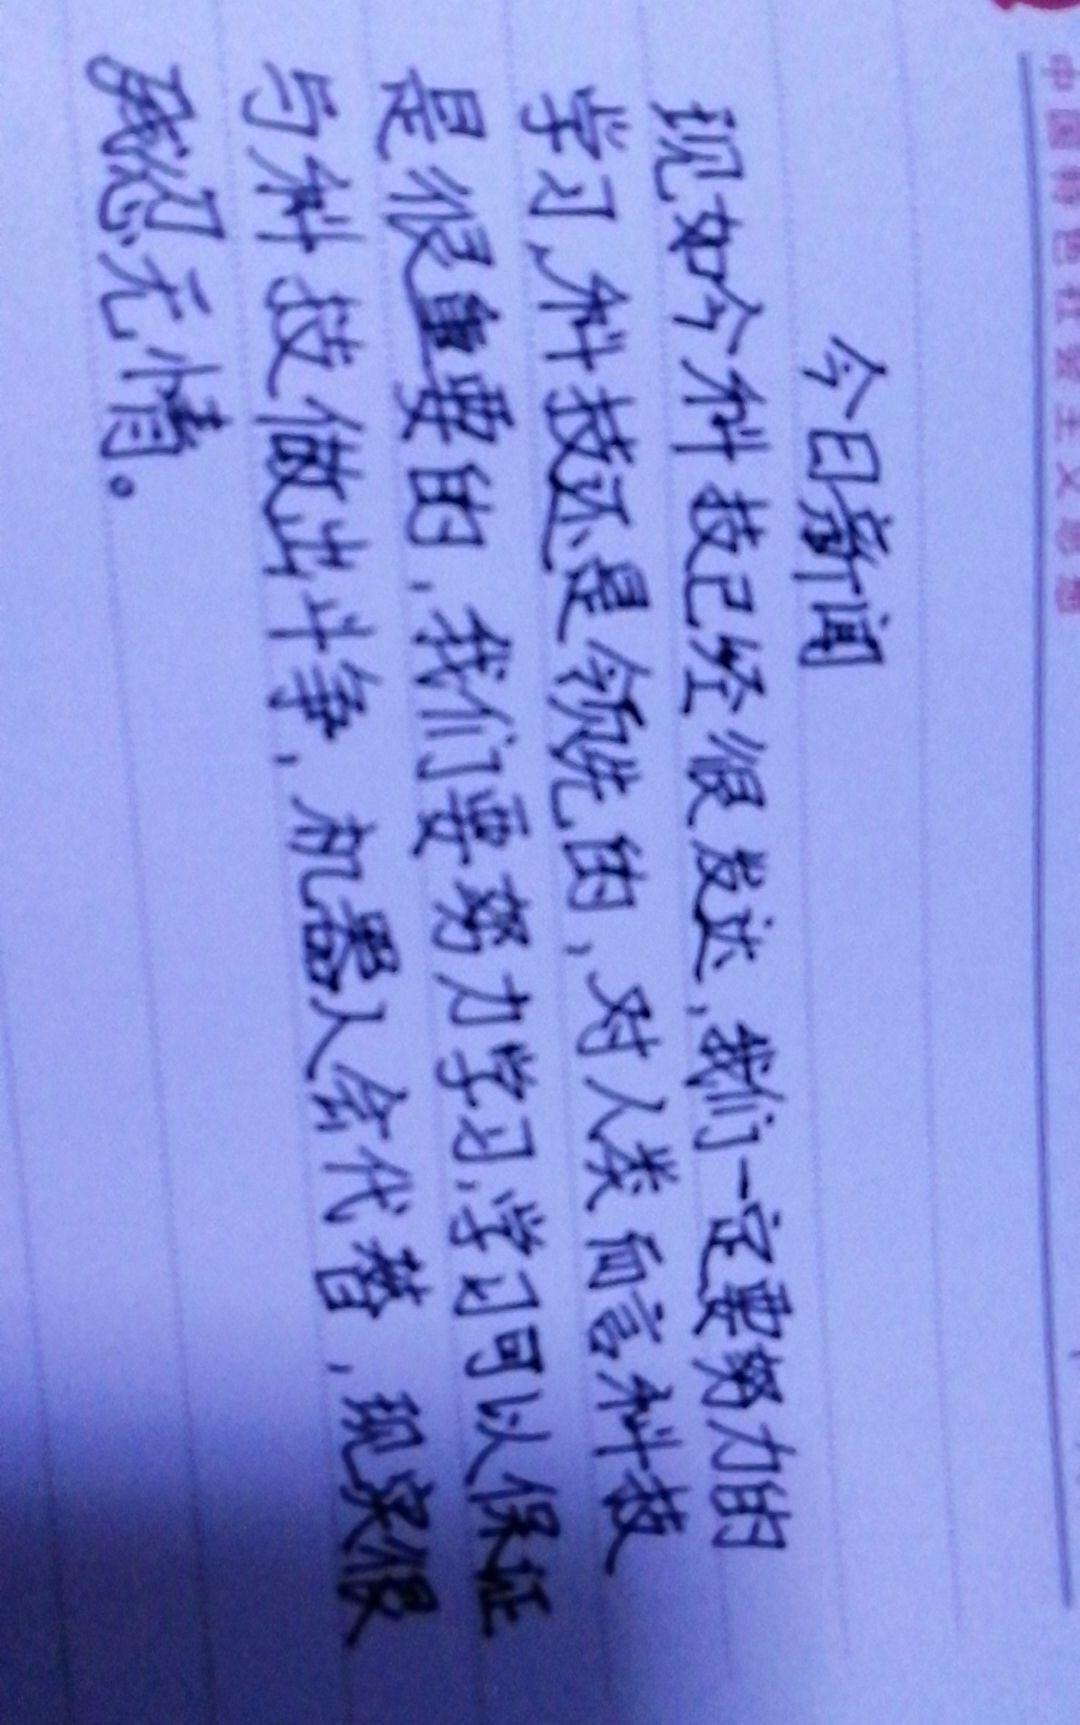 中国特色社会主义思想
今日新闻
现如今科技已经很发达,我们一定要努力的
学习,科技还是领先的,对人类而言科技
是很重要的,我们要努力学习,学习可以保证
与科技做出斗争,机器人会代替,现实很
残忍无情。